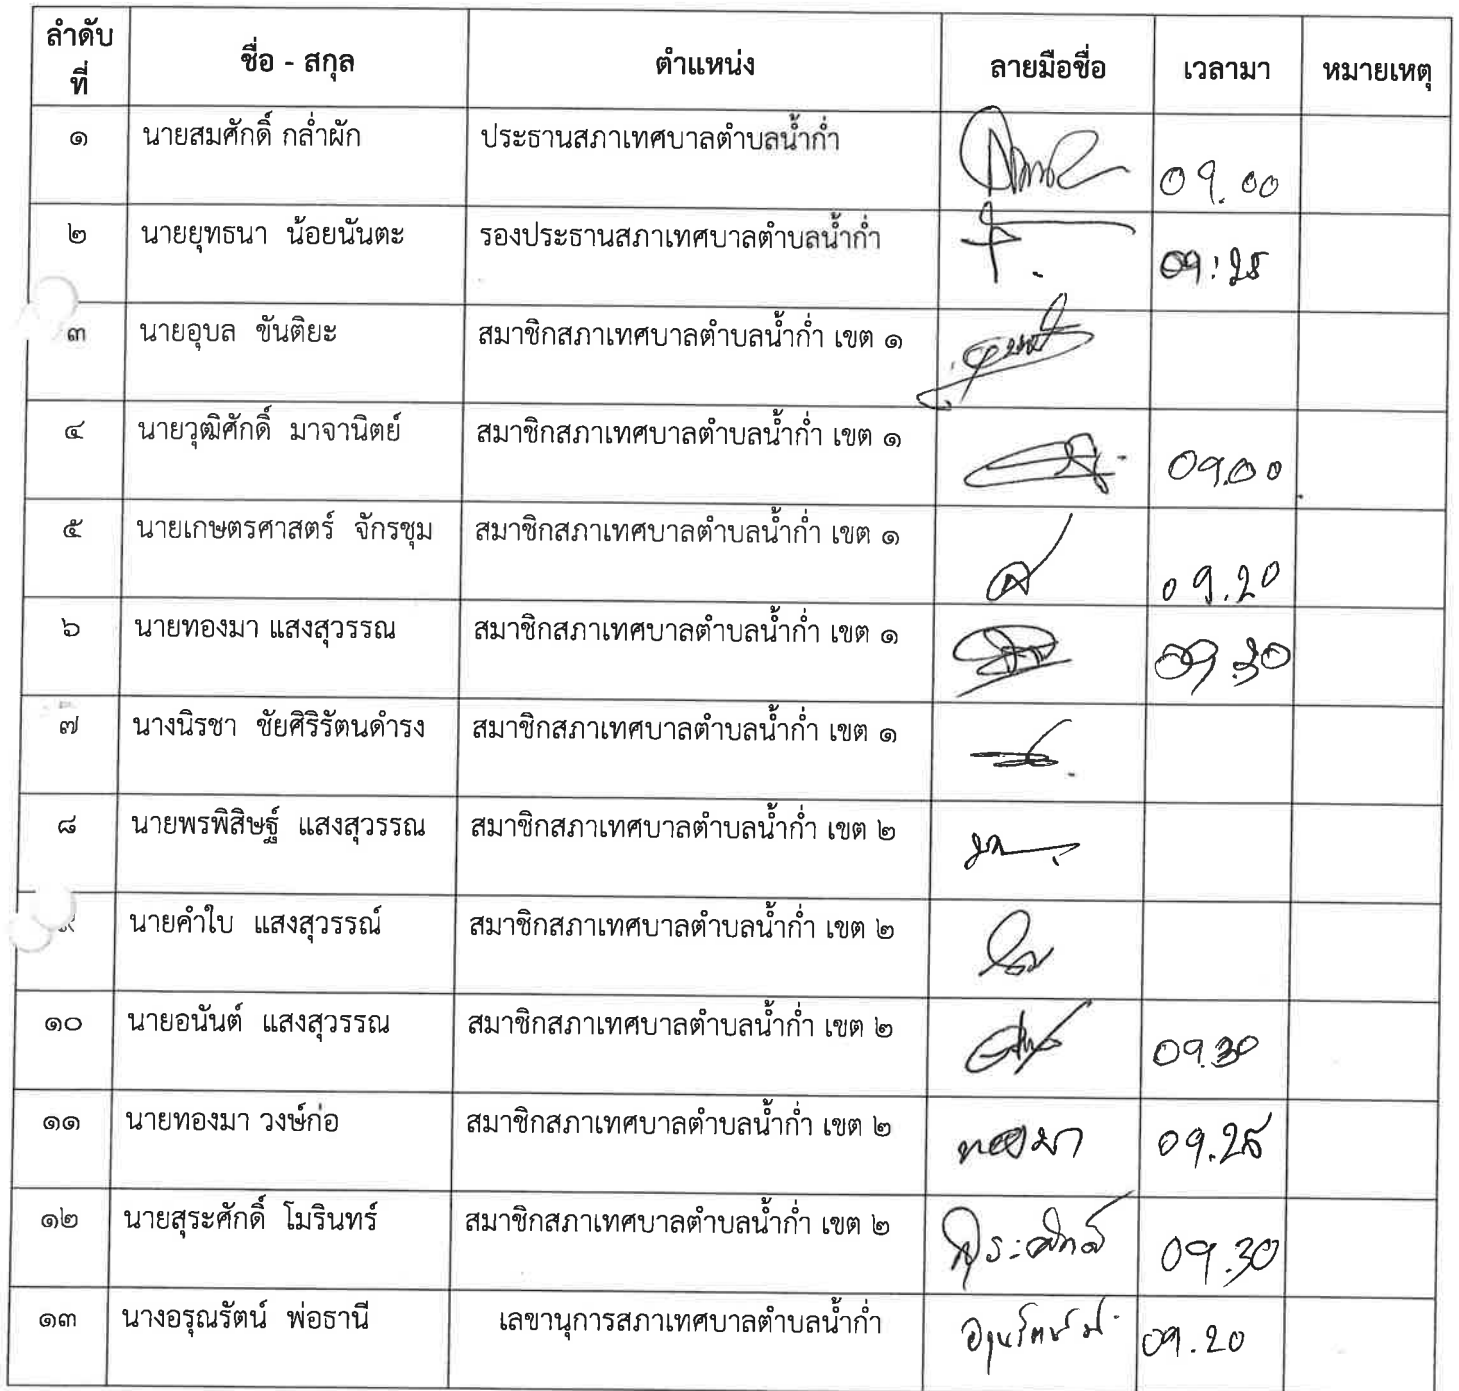 ลำดับที่ ชื่อ - สกุล ตำแหน่ง ลายมือชื่อ เวลามา หมายเหตุ
๑ นายสมศักดิ์ กล่ำผัก ประธานสภาเทศบาลตำบลน้ำก่ำ 09.00
๒ นายยุทธนา น้อยนันตะ รองประธานสภาเทศบาลตำบลน้ำก่ำ 09:25
๓ นายอุบล ขันติยะ สมาชิกสภาเทศบาลตำบลน้ำก่ำ เขต ๑
๔ นายวุฒิศักดิ์ มาจานิตย์ สมาชิกสภาเทศบาลตำบลน้ำก่ำ เขต ๑ 09.00
๕ นายเกษตรศาสตร์ จักรชุม สมาชิกสภาเทศบาลตำบลน้ำก่ำ เขต ๑ 09.20
๖ นายทองมา แสงสุวรรณ สมาชิกสภาเทศบาลตำบลน้ำก่ำ เขต ๑ 09.30
๗ นางนิรชา ชัยศิริรัตนดำรง สมาชิกสภาเทศบาลตำบลน้ำก่ำ เขต ๑
๘ นายพรพิสิษฐ์ แสงสุวรรณ สมาชิกสภาเทศบาลตำบลน้ำก่ำ เขต ๒
๙ นายคำใบ แสงสุวรรณ์ สมาชิกสภาเทศบาลตำบลน้ำก่ำ เขต ๒
๑๐ นายอนันต์ แสงสุวรรณ สมาชิกสภาเทศบาลตำบลน้ำก่ำ เขต ๒ 09.30
๑๑ นายทองมา วงษ์ก่อ สมาชิกสภาเทศบาลตำบลน้ำก่ำ เขต ๒ ทองมา 09.25
๑๒ นายสุระศักดิ์ โมรินทร์ สมาชิกสภาเทศบาลตำบลน้ำก่ำ เขต ๒ สุระศักดิ์ 09.30
๑๓ นางอรุณรัตน์ พ่อธานี เลขานุการสภาเทศบาลตำบลน้ำก่ำ อรุณรัตน์ 09.20